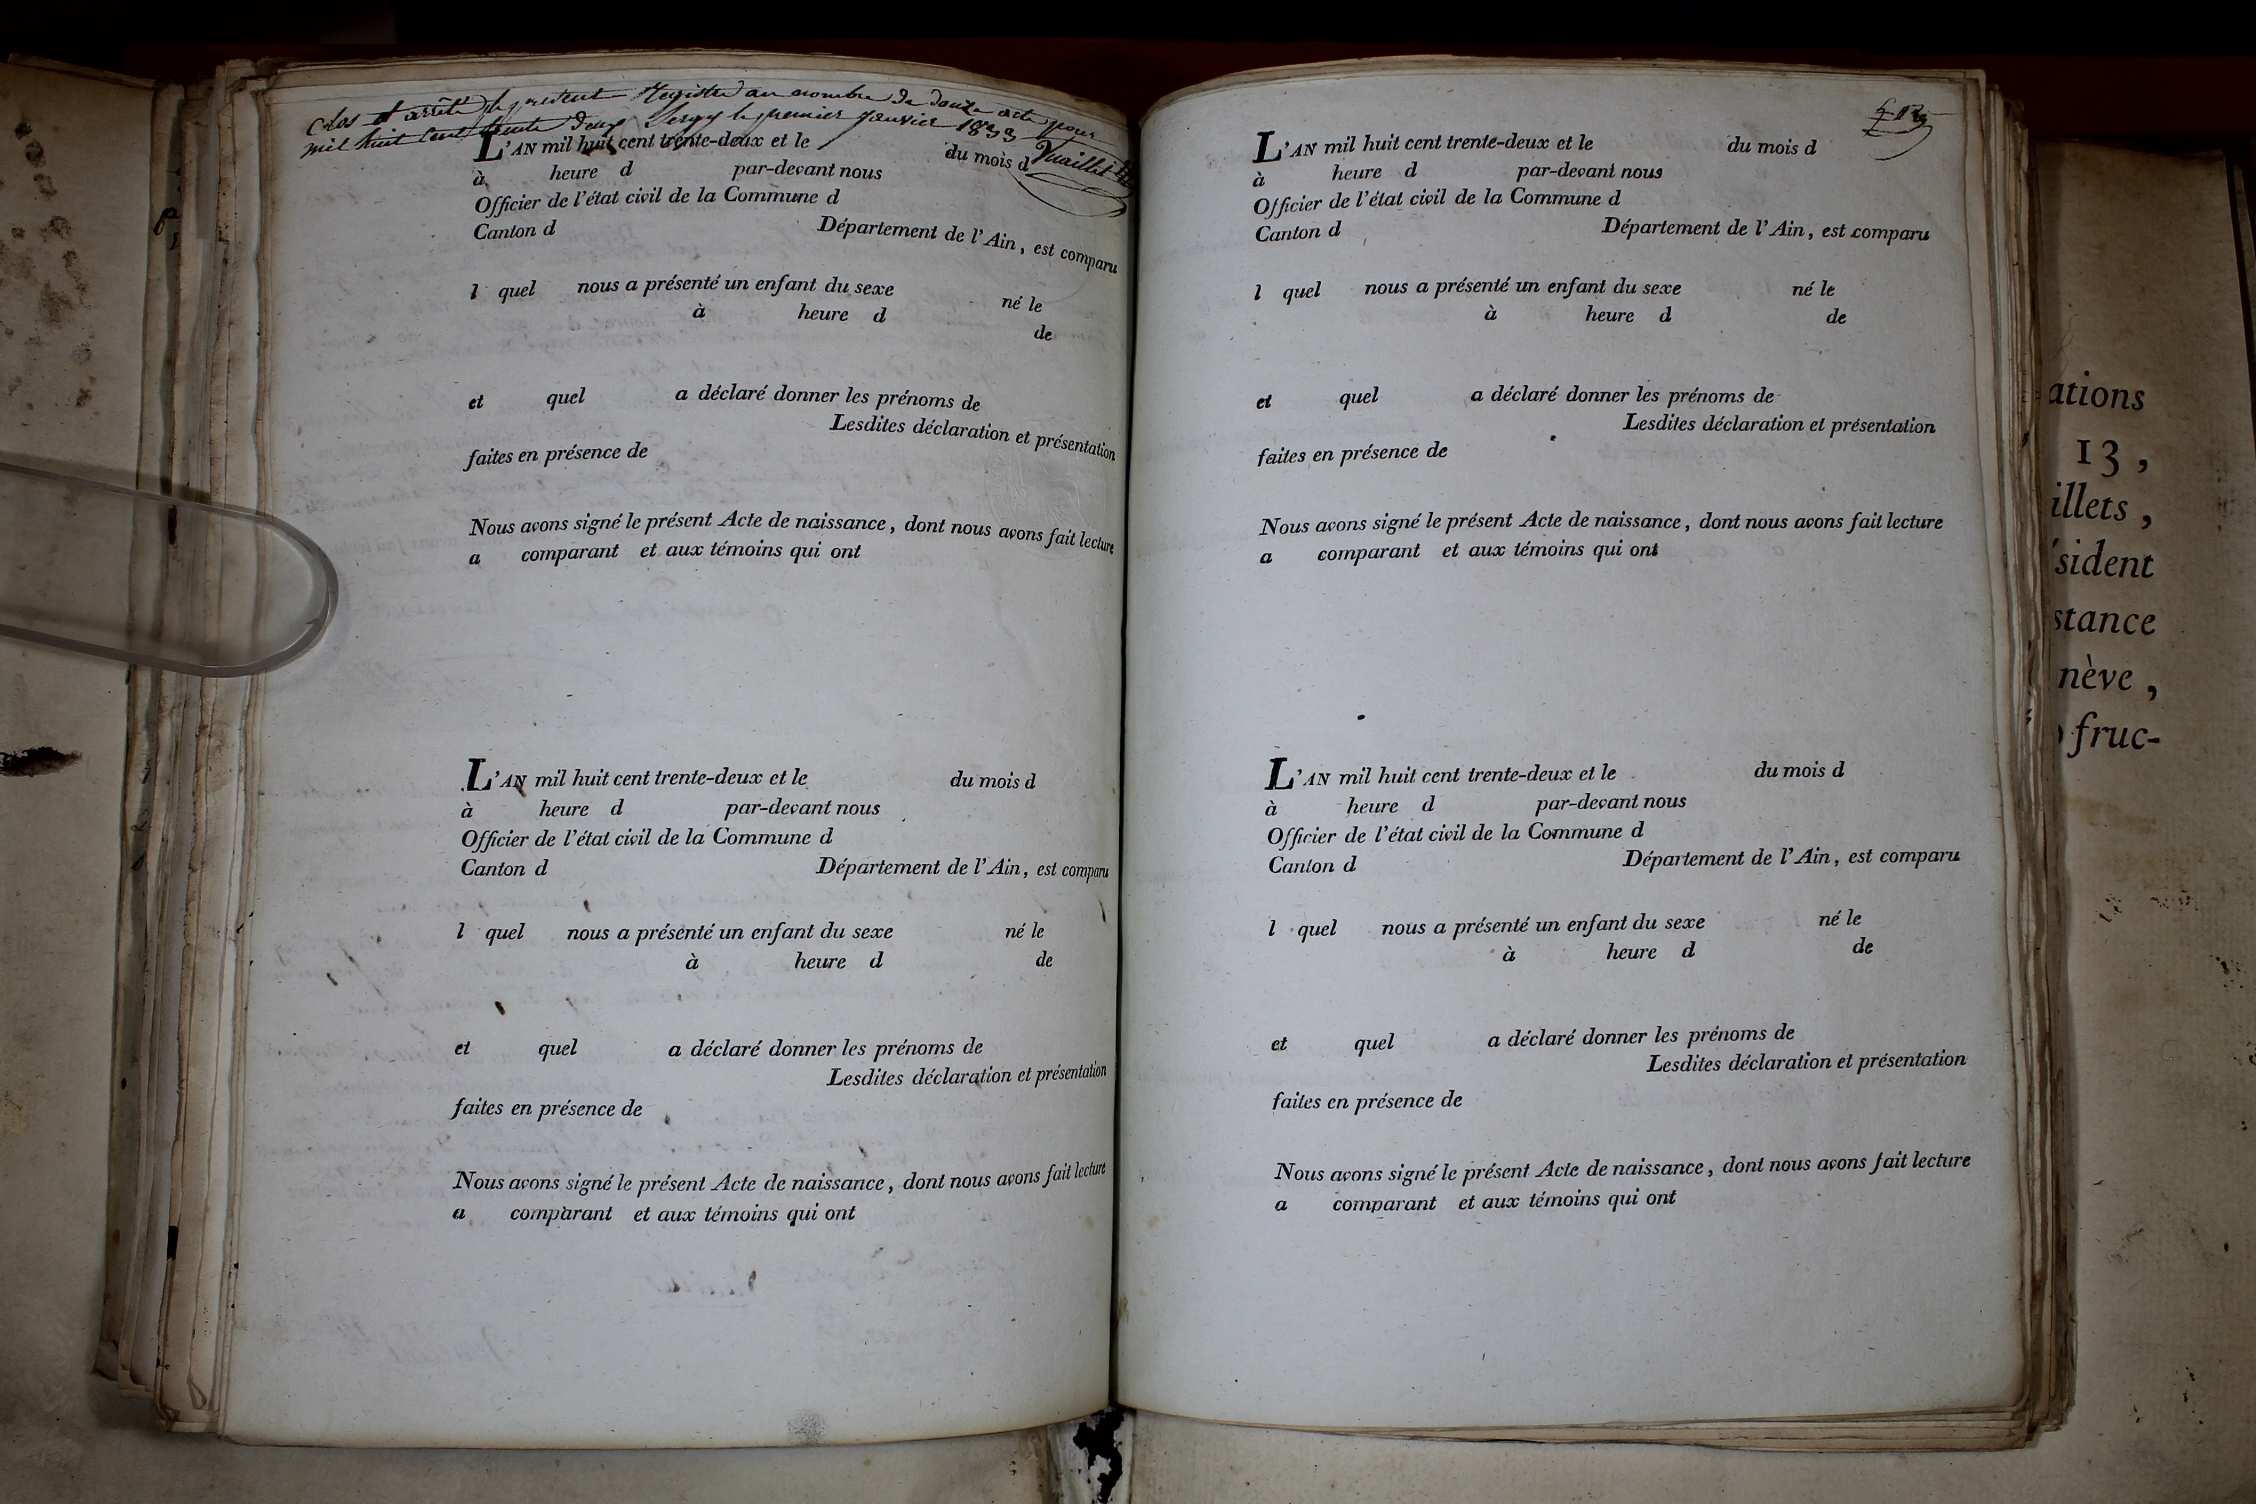 Clos et arrêté le présent Registre au nombre de douze acte pour
mil huit cent trente deux Sergy le premier janvier 1833
Vuaillet
L'AN mil huit cent trente-deux et le du mois d
à heure d par-devant nous
Officier de l'état civil de la Commune d
Canton d Département de l'Ain, est comparu
l quel nous a présenté un enfant du sexe né le
à heure d de
et quel a déclaré donner les prénoms de
Lesdites déclaration et présentation
faites en présence de
Nous avons signé le présent Acte de naissance, dont nous avons fait lecture
a comparant et aux témoins qui ont
L'AN mil huit cent trente-deux et le du mois d
à heure d par-devant nous
Officier de l'état civil de la Commune d
Canton d Département de l'Ain, est comparu
l quel nous a présenté un enfant du sexe né le
à heure d de
et quel a déclaré donner les prénoms de
Lesdites déclaration et présentation
faites en présence de
Nous avons signé le présent Acte de naissance, dont nous avons fait lecture
a comparant et aux témoins qui ont
L'AN mil huit cent trente-deux et le du mois d
à heure d par-devant nous
Officier de l'état civil de la Commune d
Canton d Département de l'Ain, est comparu
l quel nous a présenté un enfant du sexe né le
à heure d de
et quel a déclaré donner les prénoms de
Lesdites déclaration et présentation
faites en présence de
Nous avons signé le présent Acte de naissance, dont nous avons fait lecture
a comparant et aux témoins qui ont
L'AN mil huit cent trente-deux et le du mois d
à heure d par-devant nous
Officier de l'état civil de la Commune d
Canton d Département de l'Ain, est comparu
l quel nous a présenté un enfant du sexe né le
à heure d de
et quel a déclaré donner les prénoms de
Lesdites déclaration et présentation
faites en présence de
Nous avons signé le présent Acte de naissance, dont nous avons fait lecture
a comparant et aux témoins qui ont
ations
13,
illets,
sident
stance
nève,
fruc-